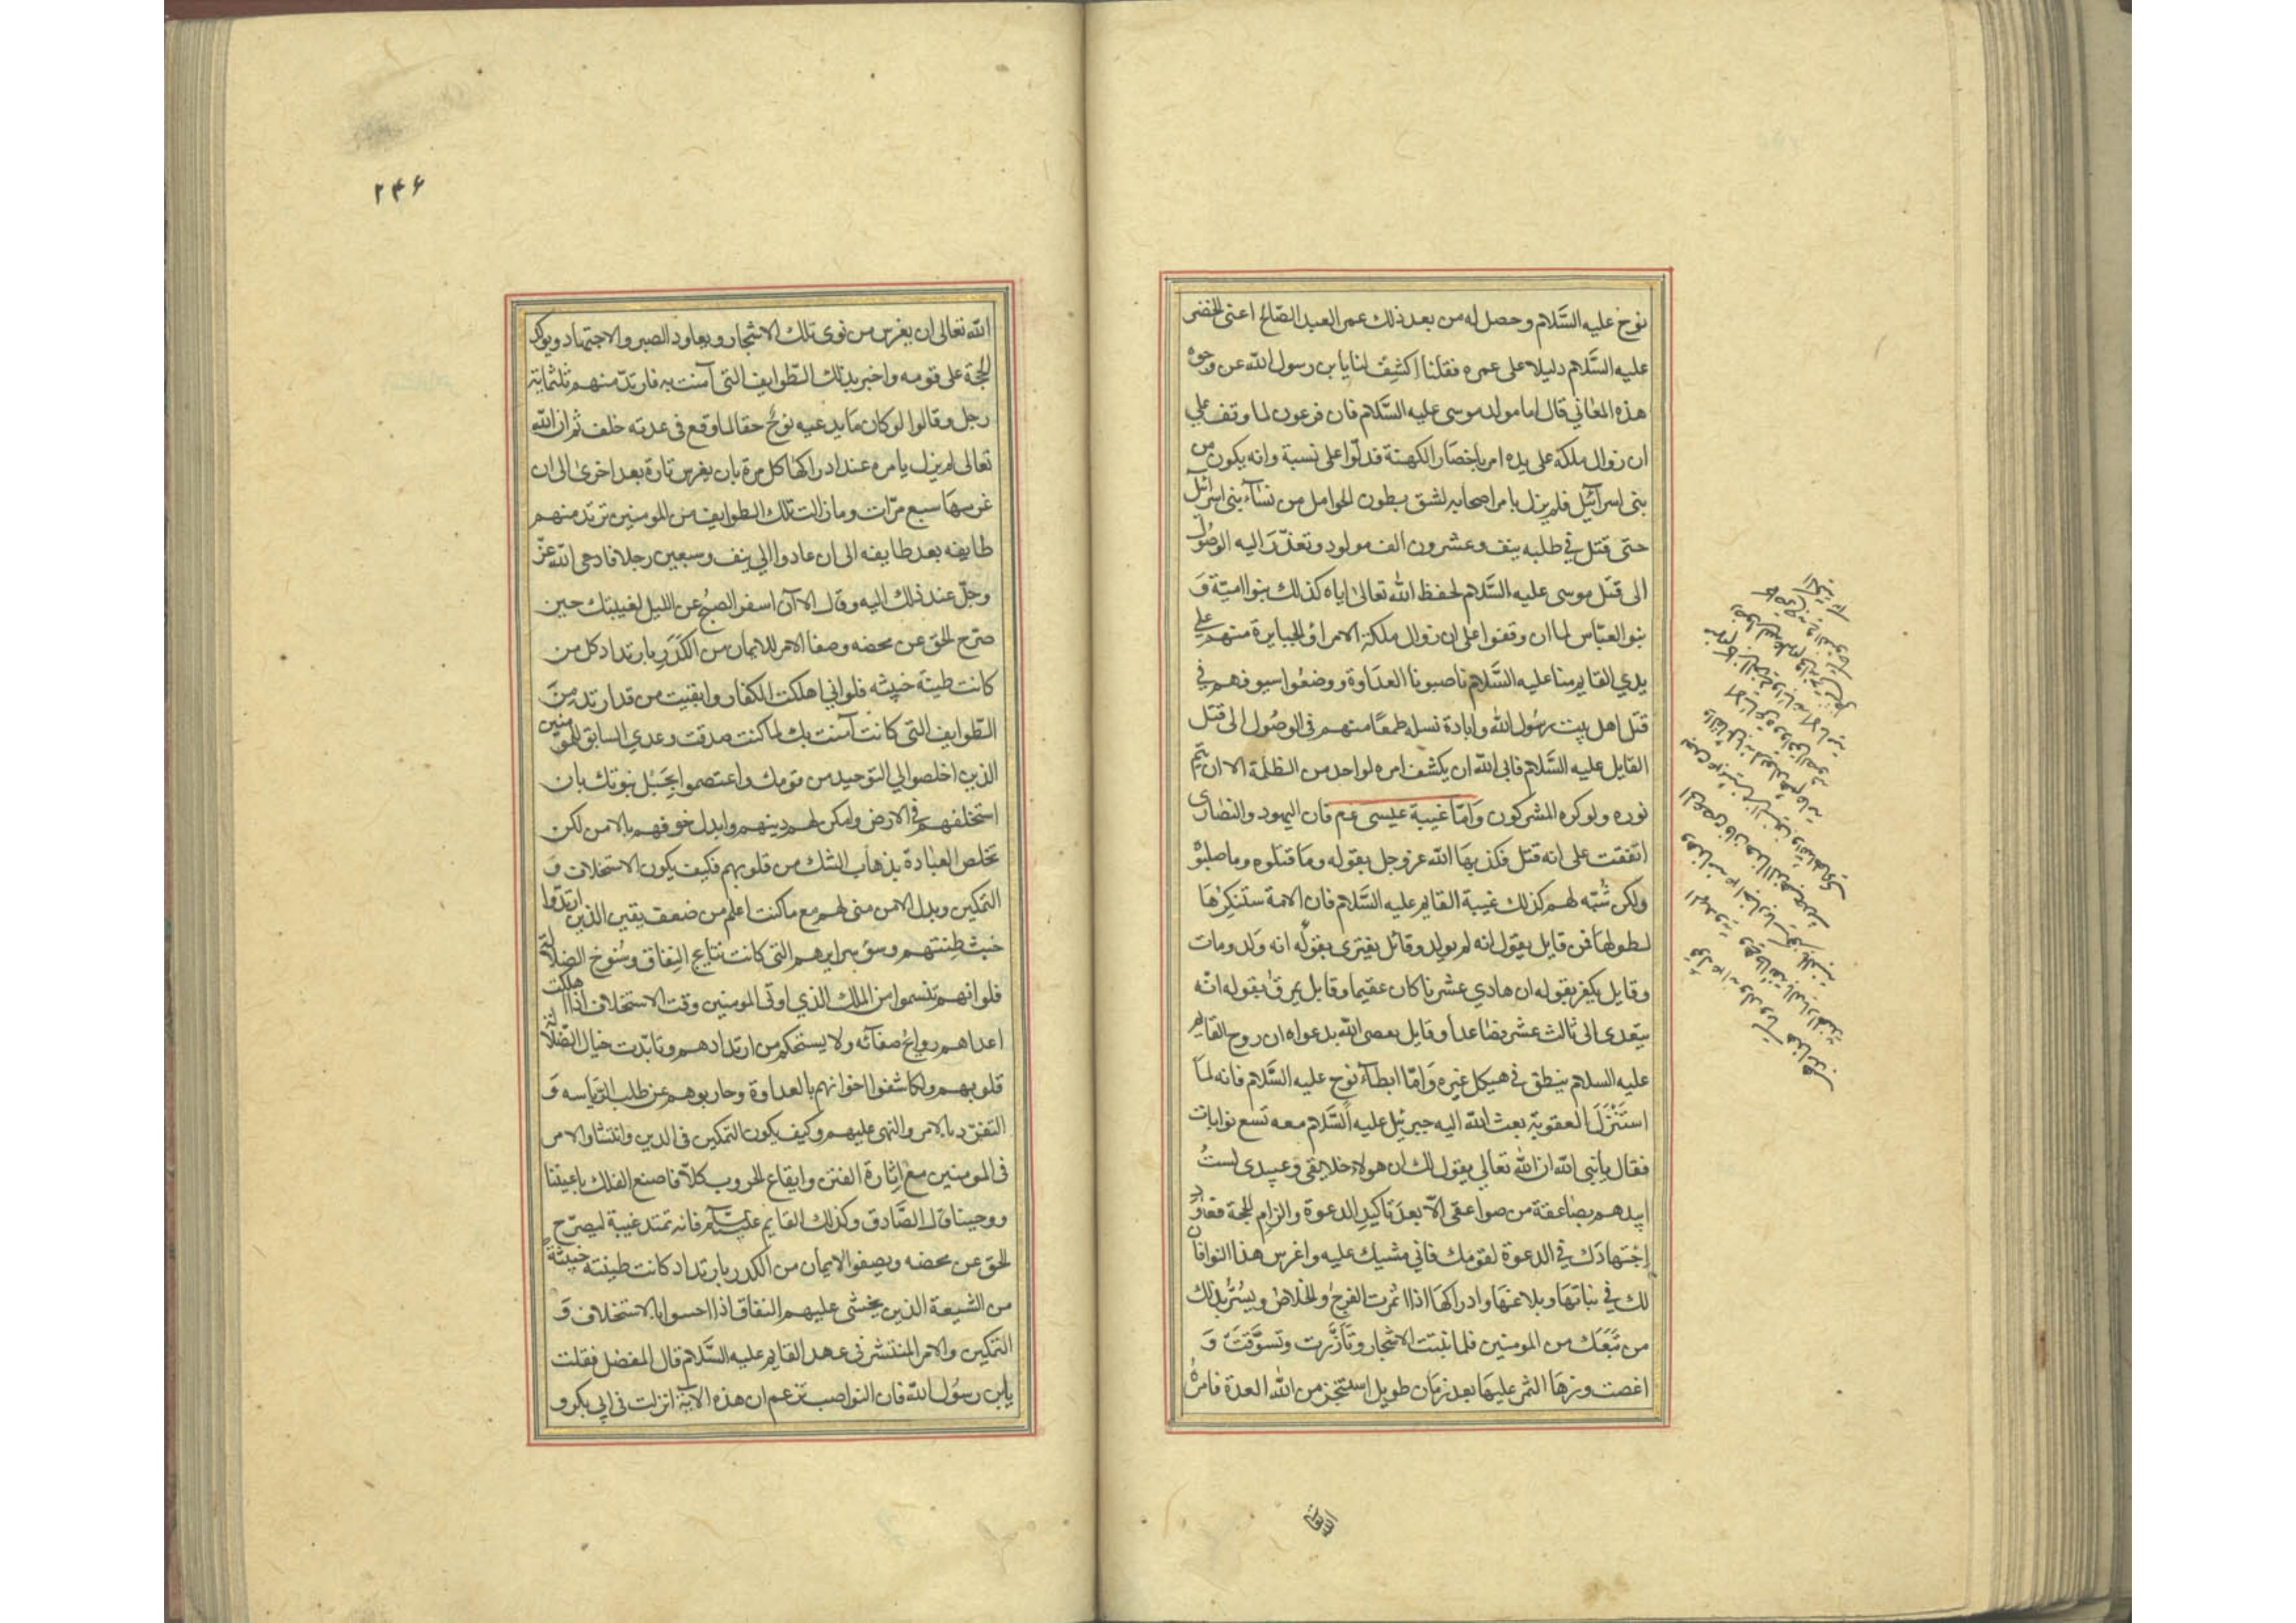 نوح عليه السَّلام وحصل له من بعد ذلك عمر العبد الصّالح اعنى الخضر
عليه السَّلام دليلا على عمره فقلنا اكشِف لنا يا بن رسول الله عن وجوه
هذه المعاني قال اما مولد موسى عليه السَّلام فان فرعون لما وقف على
ان زوال ملكه على يده امر باحضار الكهنة فدلّوا على نسبة وانه يكون من
بنى اسرآئيل فلم يزل يامر اصحابه لشق بطون الحوامل من نسآء بنى اسرآئيل
حتى قتل في طلبه نيف وعشرون الف مولود وتعذّر اليه الوصُول
الى قتل موسى عليه السَّلام لحفظ الله تعالى اياه كذلك بنوا اميّة وَ
بنو العبّاس لما ان وقفوا على ان زوال ملكة الامراؤ الجبابرة منهم على
يدي القايم منا عليه السَّلام ناصبونا العدَاوة ووضعُوا سيوفهم في
قتل اهل بيت رسُول الله وابادة نسله طمعًا منهم فى الوصُول الى قتل
القايل عليه السَّلام فابى الله ان يكشف امره لواحد من الظلمة الا ان يتم
نوره ولو كره المشركون وَامّا غيبة عيسى عم فان اليهود والنصَارى
اتفقت على انه قتل فكذبهَا الله عز وجل بقوله وما قتلوه وما صلبوه
ولكن شُبّه لهم كذلك غيبة القايم عليه السَّلام فان الامة ستنكرهَا
لطولهَا فمن قايل يقول انه لم يولد وقائل يفترى بقوله انه وَلد ومات
وقايل يكفر بقوله ان هادي عشرنا كان عقيما وقايل يمرق بقوله انّه
يتعدى الى ثالث عشر فصَاعدا وقايل يعصى الله بدعواه ان روح القايم
عليه السلام ينطق في هيكل غيره وَامّا ابطآء نوح عليه السَّلام فانه لمّا
استَنْزَلَ العقوبة بعث الله اليه جبرئيل عليه السَّلام معه تسع نوايات
فقال يا نبى الله ان الله تعالي يقول لك ان هولاء خلايقي وعبيدى لستُ
ابيدهم بصَاعقة من صواعقى الّا بعدَ تاكيدِ الدعوة والزامِ الحجة فعَاوِد
اِجْتهادَك في الدعوة لقومك فاني مثيبك عليه واغرس هذا النوا فان
لك في نباتهَا وبلاغهَا وادراكهَا اذا اثمرت الفرج والخلاص ويبُشّر بذلك
من تبَعَك من المومنين فلما نبتت الاشجار وتأزّرت وتسوَّقتَ وَ
اغصت وزهَا الثمر عليهَا بعد زمَان طويل استنجز من الله العدة فامرهُ
الله تعا
۲۴۶
الله تعالى ان يغرس من نوى تلك الاشجار ويعاود الصبر والاجتهاد ويؤكد
الحجة على قومه واخبر بذلك الطّوايف التى آمنت به فارتدّ منهم ثلثماية
رجل وقالوا لو كان مَا يدعيه نوحٌ حقا لما وقع فى عدته خلف ثم ان الله
تعالى لم يزل يامره عند ادراكهَا كل مرة بان يغرس تارة بعد اخرىٰ الى ان
غرسهَا سبع مرّات وما زالت تلك الطوايف من المومنين ترتد منهم
طايفه بعد طايفه الى ان عادوا الي نيف وسبعين رجلا فاوحى الله عزّ
وجلّ عند ذلك اليه وقال الآن اسفر الصبُح عن الليل لغيبتك حين
صرّح الحق عن محضه وصفا الامر للايمان من الكَدَرِ بارتداد كل من
كانت طينة خبيثه فلو اني اهلكت الكفار وابقيت من قد ارتد منَ
الطّوايف التى كانت آمنت بك لما كنت صدقت وعدي السابق للمومنين
الذين اخلصوا لي التوحيد من قومك واعتصموا بحَبْل نبوتك بان
استخلفهم في الارض وامكن لهم دينهم وابدل خوفهم بالامن لكن
تخلص العبادة بذهاب الشك من قلوبهم فكيف يكون الاستخلاف وَ
التمكين وبدل الامن منى لهم مع ما كنت اعلم من ضعف يقين الذين ارتدّوا
خبث طِينتهم وسؤ سرايرهم التى كانت نتايج النِفاق وسُنوخ الضلالة
فلو انهم تنسموا من الملك الذي اوتى المومنين وقت الاستخلاف اذا اهلكت
اعداهم روايح صفآته ولا يستحكم من ارتدادهم وتابّدت خيال الضّلالة
قلوبهم ولكاشفوا اخوانهم بالعداوة وحاربوهم عن طلب الرّياسه وَ
التفرّد بالامر والنهى عليهم وكيف يكون التمكين فى الدين وانتشاو الامر
فى المومنين مع اِثارة الفتن وايقاع الحروب كلّا فاصنع الفلك باعيننا
ووحينا قال الصَّادق وكذلك القايم عليه السّلام فانه تمتد غيبة ليصرّح
الحق عن محضه ويصفو الايمان من الكدر بارتداد كانت طينته خبيثة
من الشيعة الذين يخشى عليهم النفاق اذا احسوا بالاستخلاف وَ
التمكين والامر المنتشر فى عهد القايم عليه السَّلام قال المفضل فقلت
يا بن رسُول الله فان النواصب تزعم ان هذه الآية انزلت فى ابى بكر و